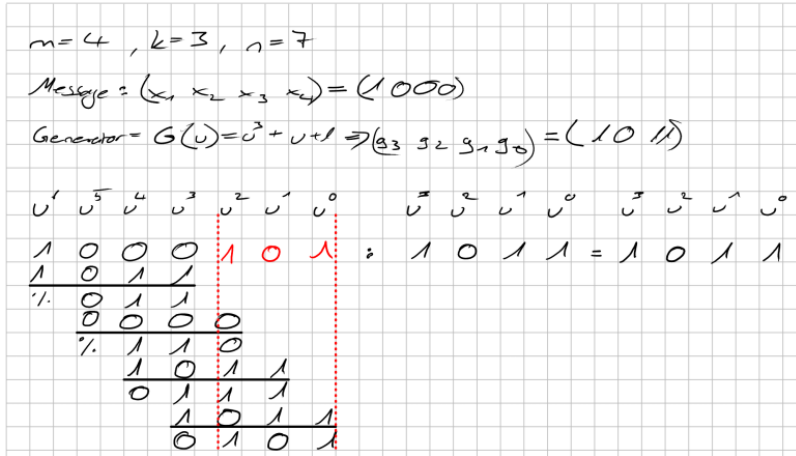 m=4 , k=3, n=7
Message = (x₁ x₂ x₃ x₄) = (1000)
Generator = G(u)=u³+u+1 ⇒ (g₃ g₂ g₁ g₀) = (1011)
u¹ u⁵ u⁴ u³ u² u¹ u⁰ u³ u² u¹ u⁰ u³ u² u¹ u⁰
1 0 0 0 1 0 1 : 1 0 1 1 = 1 0 1 1
1 0 1 1
% 0 1 1
0 0 0 0
% 1 1 0
1 0 1 1
0 1 1 1
1 0 1 1
0 1 0 1